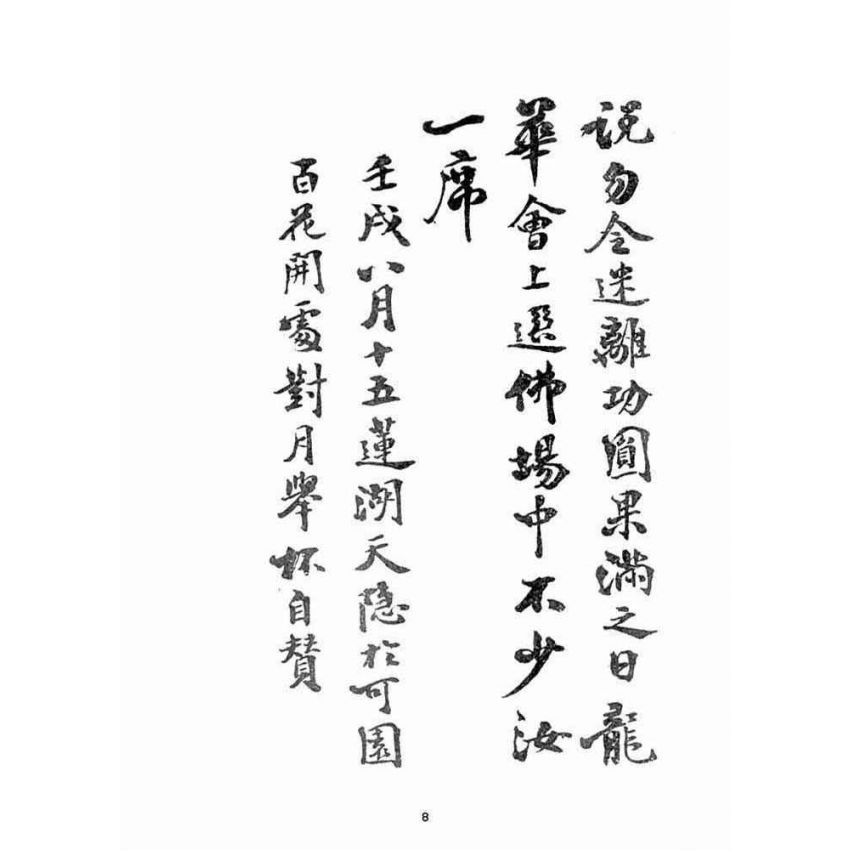 說勿令迷離功圓果滿之日龍
華會上選佛場中不少汝
一席
壬戌八月十五蓮湖天隱於可園
百花開處對月舉杯自贊
8